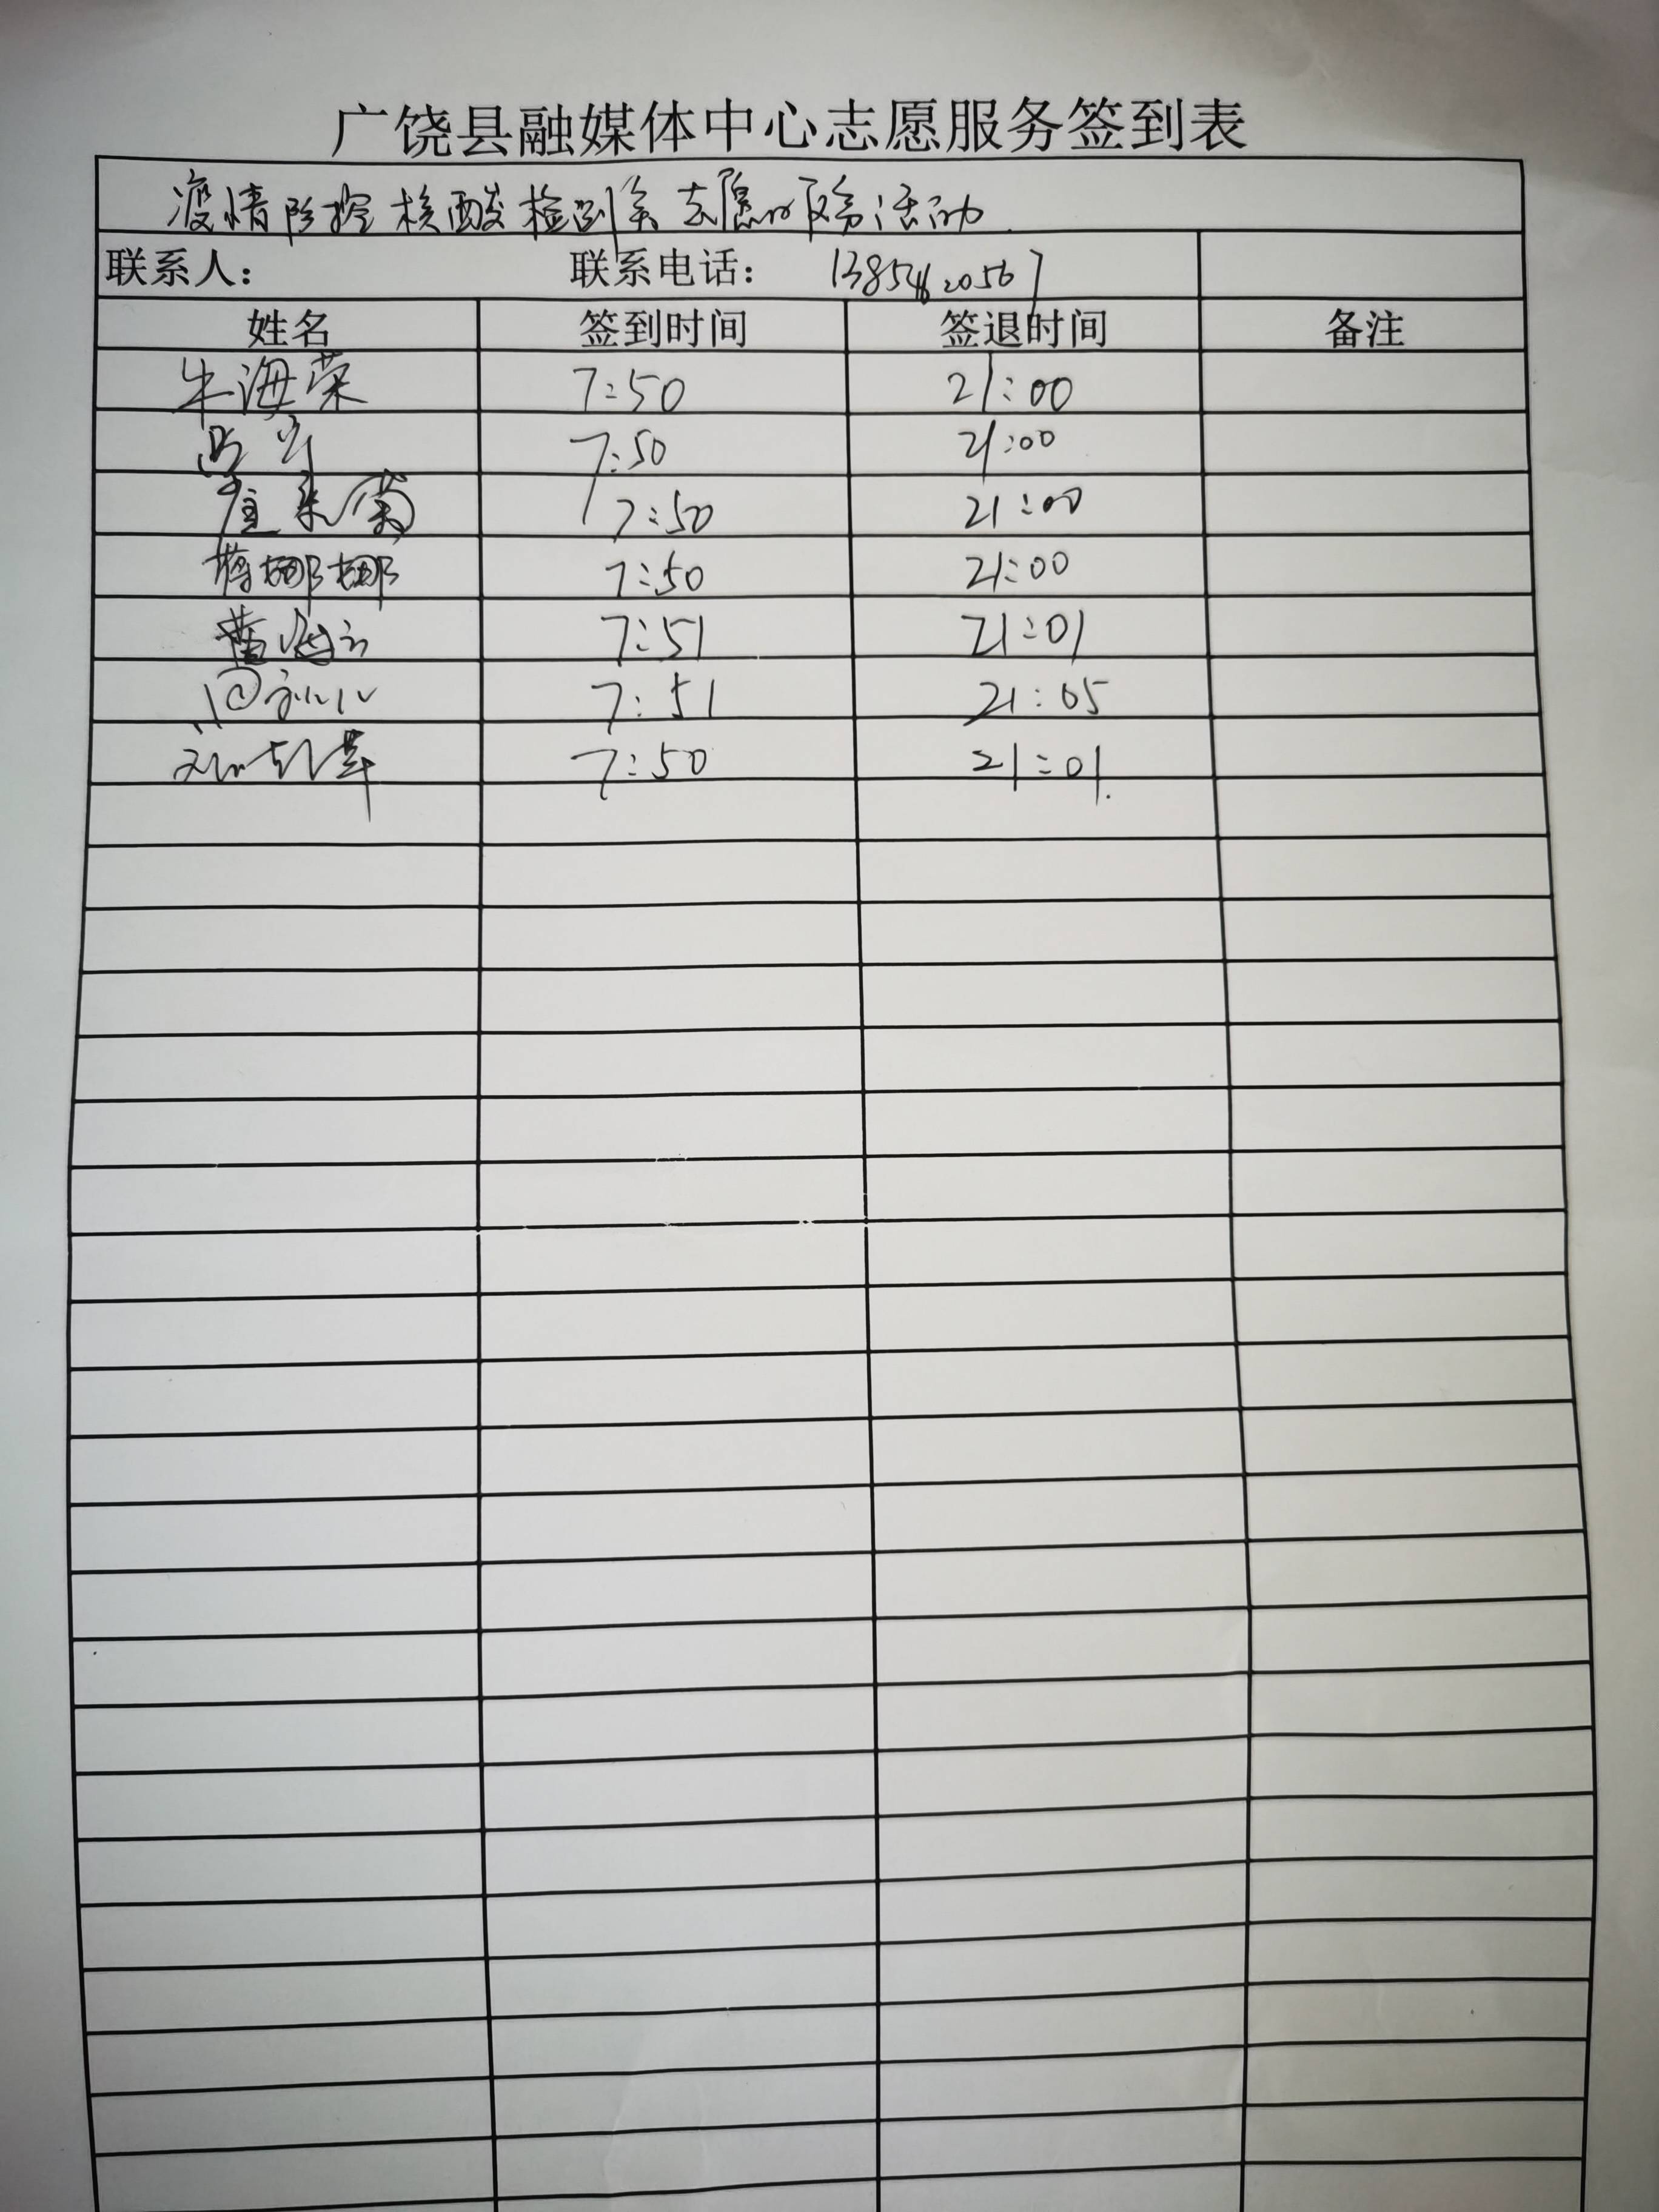 广饶县融媒体中心志愿服务签到表
疫情防控核酸检测类志愿服务活动
联系人： 联系电话：
姓名 签到时间 签退时间 备注
牛海荣 7:50 21:00
7:50 21:00
7:50 21:00
蒋娜娜 7:50 21:00
7:51 21:01
7:51 21:05
7:50 21:01